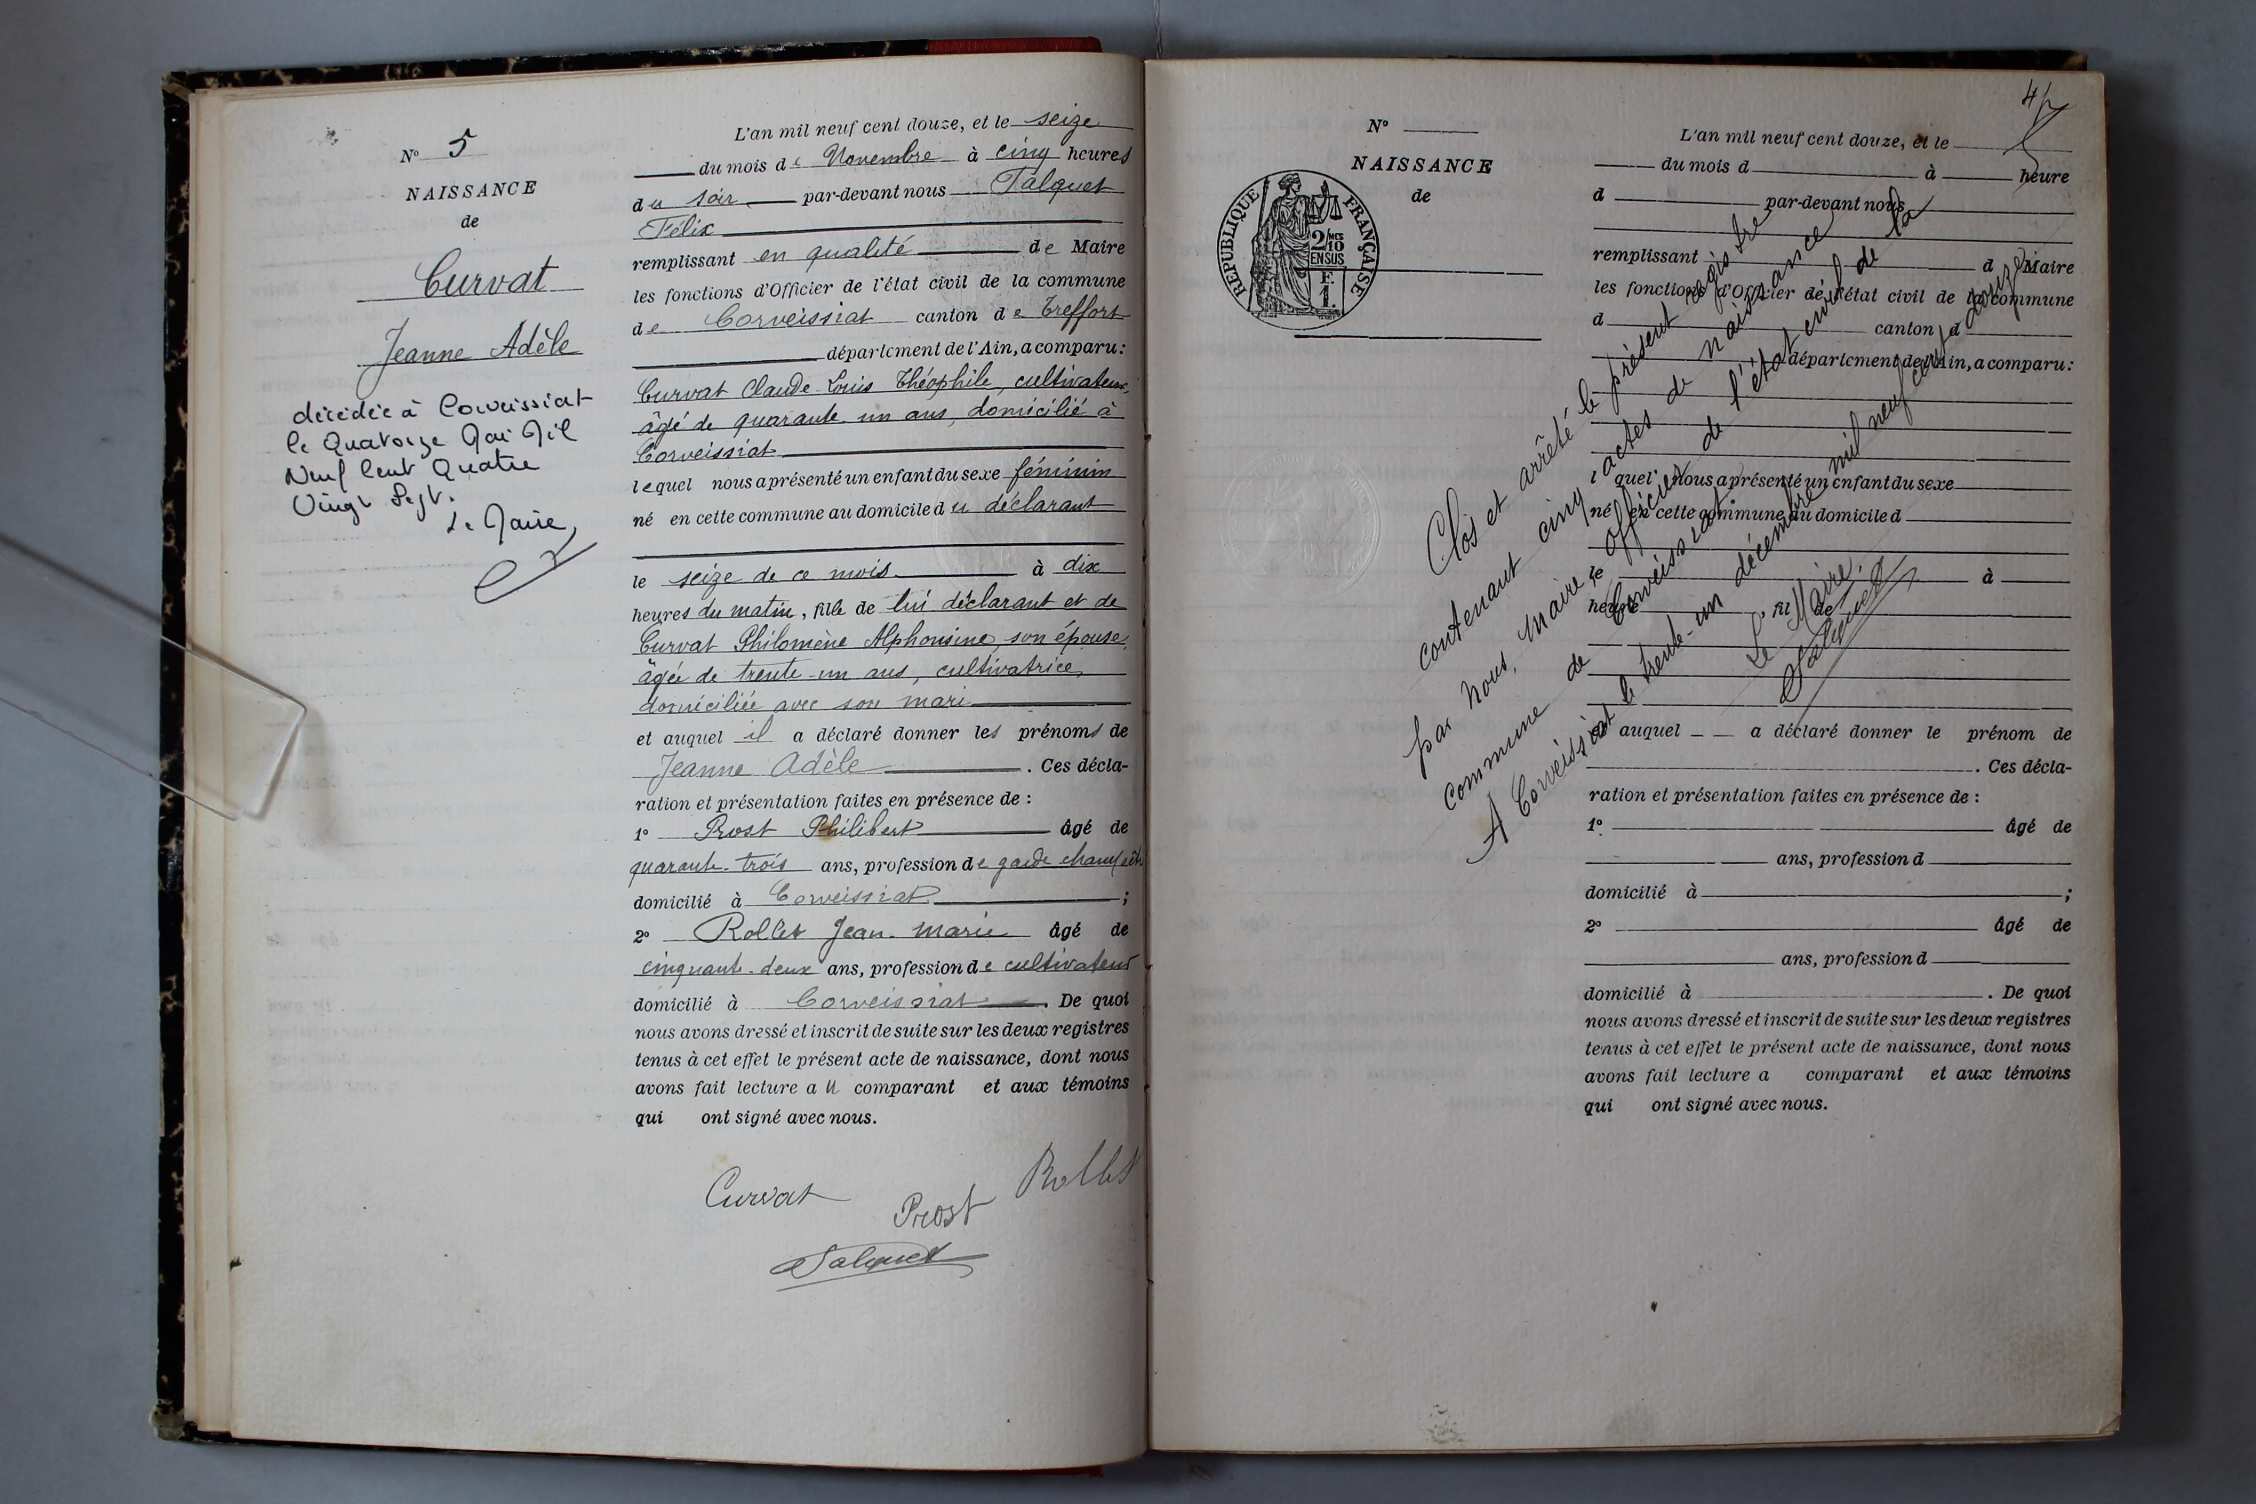 N° 5
NAISSANCE
de
Curvat
Jeanne Adèle
décédée à Corveissiat
le Quatorze Mai Mil
Neuf Cent Quatre
Vingt Sept.
Le Maire,
L'an mil neuf cent douze, et le seize
du mois de Novembre à cinq heures
du soir par-devant nous Salquet
Félix
remplissant en qualité de Maire
les fonctions d'Officier de l'état civil de la commune
de Corveissiat canton de Treffort
département de l'Ain, a comparu:
Curvat Claude Louis Théophile, cultivateur,
âgé de quarante un ans, domicilié à
Corveissiat
lequel nous a présenté un enfant du sexe féminin
né en cette commune au domicile du déclarant
le seize de ce mois à dix
heures du matin, fille de lui déclarant et de
Curvat Philomène Alphonsine, son épouse,
âgée de trente-un ans, cultivatrice,
domiciliée avec son mari
et auquel il a déclaré donner les prénoms de
Jeanne Adèle. Ces décla-
ration et présentation faites en présence de :
1° Prost Philibert âgé de
quarante-trois ans, profession de garde champêtre
domicilié à Corveissiat ;
2° Rollet Jean-Marie âgé de
cinquante-deux ans, profession de cultivateur
domicilié à Corveissiat. De quoi
nous avons dressé et inscrit de suite sur les deux registres
tenus à cet effet le présent acte de naissance, dont nous
avons fait lecture au comparant et aux témoins
qui ont signé avec nous.
Curvat
Prost
Rollet
Salquet
N°
NAISSANCE
de
REPUBLIQUE FRANÇAISE
2/10 MES
EN SUS
F.
1.
L'an mil neuf cent douze, et le
du mois d à heure
d par-devant nous
remplissant d Maire
les fonctions d'Officier de l'état civil de la commune
d canton d
département de l'Ain, a comparu:
l quel nous a présenté un enfant du sexe
né en cette commune au domicile d
le à
heure fil de
et auquel a déclaré donner le prénom de
. Ces décla-
ration et présentation faites en présence de :
1° âgé de
ans, profession d
domicilié à ;
2° âgé de
ans, profession d
domicilié à . De quoi
nous avons dressé et inscrit de suite sur les deux registres
tenus à cet effet le présent acte de naissance, dont nous
avons fait lecture a comparant et aux témoins
qui ont signé avec nous.
Clos et arrêté le présent registre
contenant cinq actes de naissance
par nous, Maire, officier de l'état civil de la
commune de Corveissiat
A Corveissiat le trente-un décembre mil neuf cent douze.
Le Maire.
Salquet